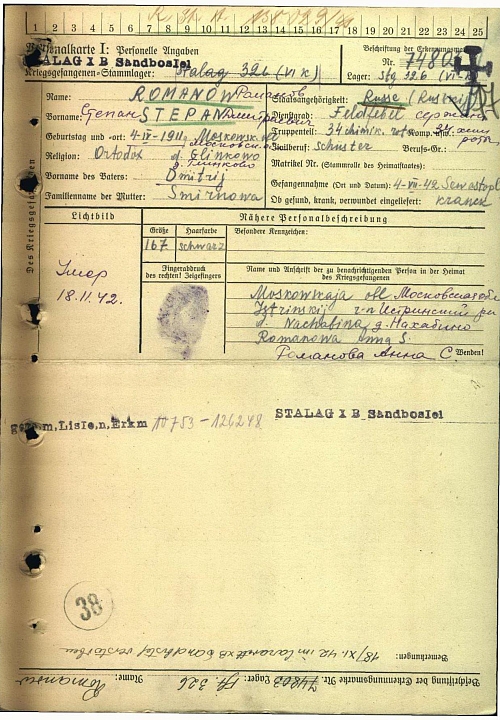 1 2 3 4 5 6 7 8 9 10 11 12 13 14 15 16 17 18 19 20 21 22 23 24 25
Personalkarte I: Personelle Angaben
STALAG X B Sandbostel
Kriegsgefangenen-Stammlager: Stalag 326 (VI K)
Beschriftung der Erkennungsmarke
Nr. 74803
Lager: Stg 326 (VI-K)
Des Kriegsgefangenen
Name: ROMANOW Романов
Staatsangehörigkeit: Russe /Russki/
Vorname: Степан STEPAN Дмитриевич
Dienstgrad: Feldfebel сержант
Truppenteil: 34 chimik. Komp. usw.:
Geburtstag und -ort: 4-IV-1911 Moskowsk. obl
Московская
Zivilberuf: Schuster Berufs-Gr.:
Religion: Ortodox d. Glinkowo
д. Глинково
Matrikel Nr. (Stammrolle des Heimatstaates):
Vorname des Vaters: Dmitrij
Gefangennahme (Ort und Datum): 4-VII-42 Sewastopl
Familienname der Mutter: Smirnowa
Ob gesund, krank, verwundet eingeliefert: kranck
Lichtbild
Nähere Personalbeschreibung
Größe Haarfarbe Besondere Kennzeichen:
167 schwarz
Умер
18.11.42.
Fingerabdruck
des rechten! Zeigefingers
Name und Anschrift der zu benachrichtigenden Person in der Heimat
des Kriegsgefangenen
Moskowskaja obl Московская обл
Istrinski r-n Истринский р-н
d. Nachabina д. Нахабино
Romanowa Anna S.
Романова Анна С. Wenden!
gem.Liste.n.Erkm 10753-126248
STALAG X B Sandbostel
38
Bemerkungen: 18/XI. 42 im Lazarett XB Sandbostel verstorben
Beschriftung der Erkennungsmarke Nr. 74803 Lager: St. 326 Name: Romanow